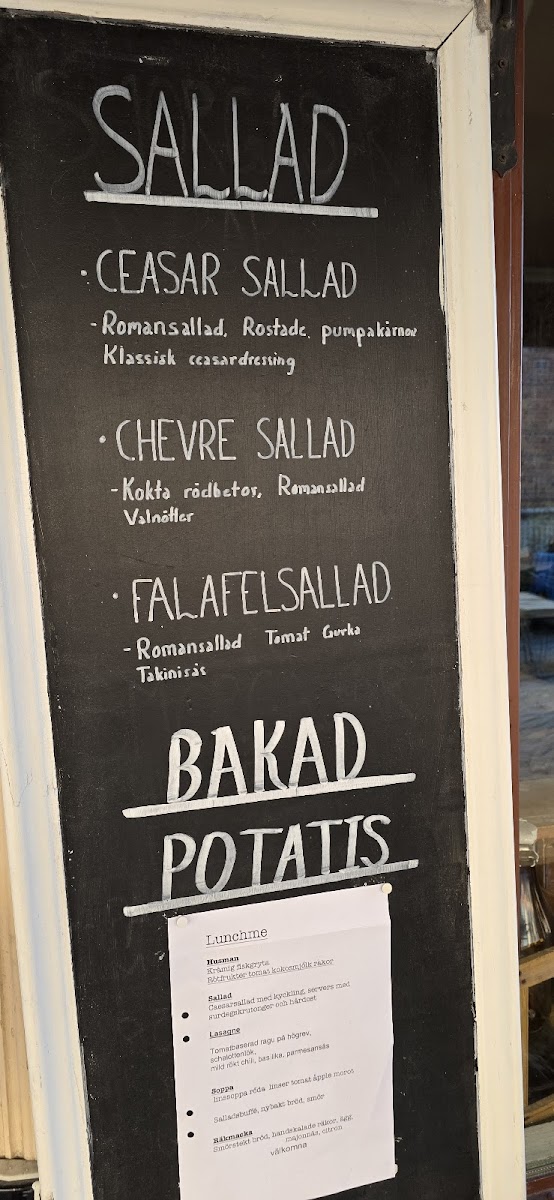 SALLAD
· CEASAR SALLAD
- Romansallad, Rostade, pumpakärnor
Klassisk ceasardressing
· CHEVRE SALLAD
- Kokta rödbetor, Romansallad
Valnötter
· FALAFELSALLAD
- Romansallad Tomat Gurka
Takinisås
BAKAD
POTATIS
Lunchme
Husman
Krämig fiskgryta
Rötfrukter tomat kokosmjölk räkor
Sallad
Caesarsallad med kyckling, servers med
surdegskrutonger och hårdost
Lasagne
Tomatbaserad ragu på högrev,
schalottenlök,
mild rökt chili, basilika, parmesansås
Soppa
linssoppa röda linser tomat äpple morot
Salladsbuffé, nybakt bröd, smör
Räkmacka
Smörstekt bröd, handskalade räkor, ägg,
majonnäs, citron
välkomna